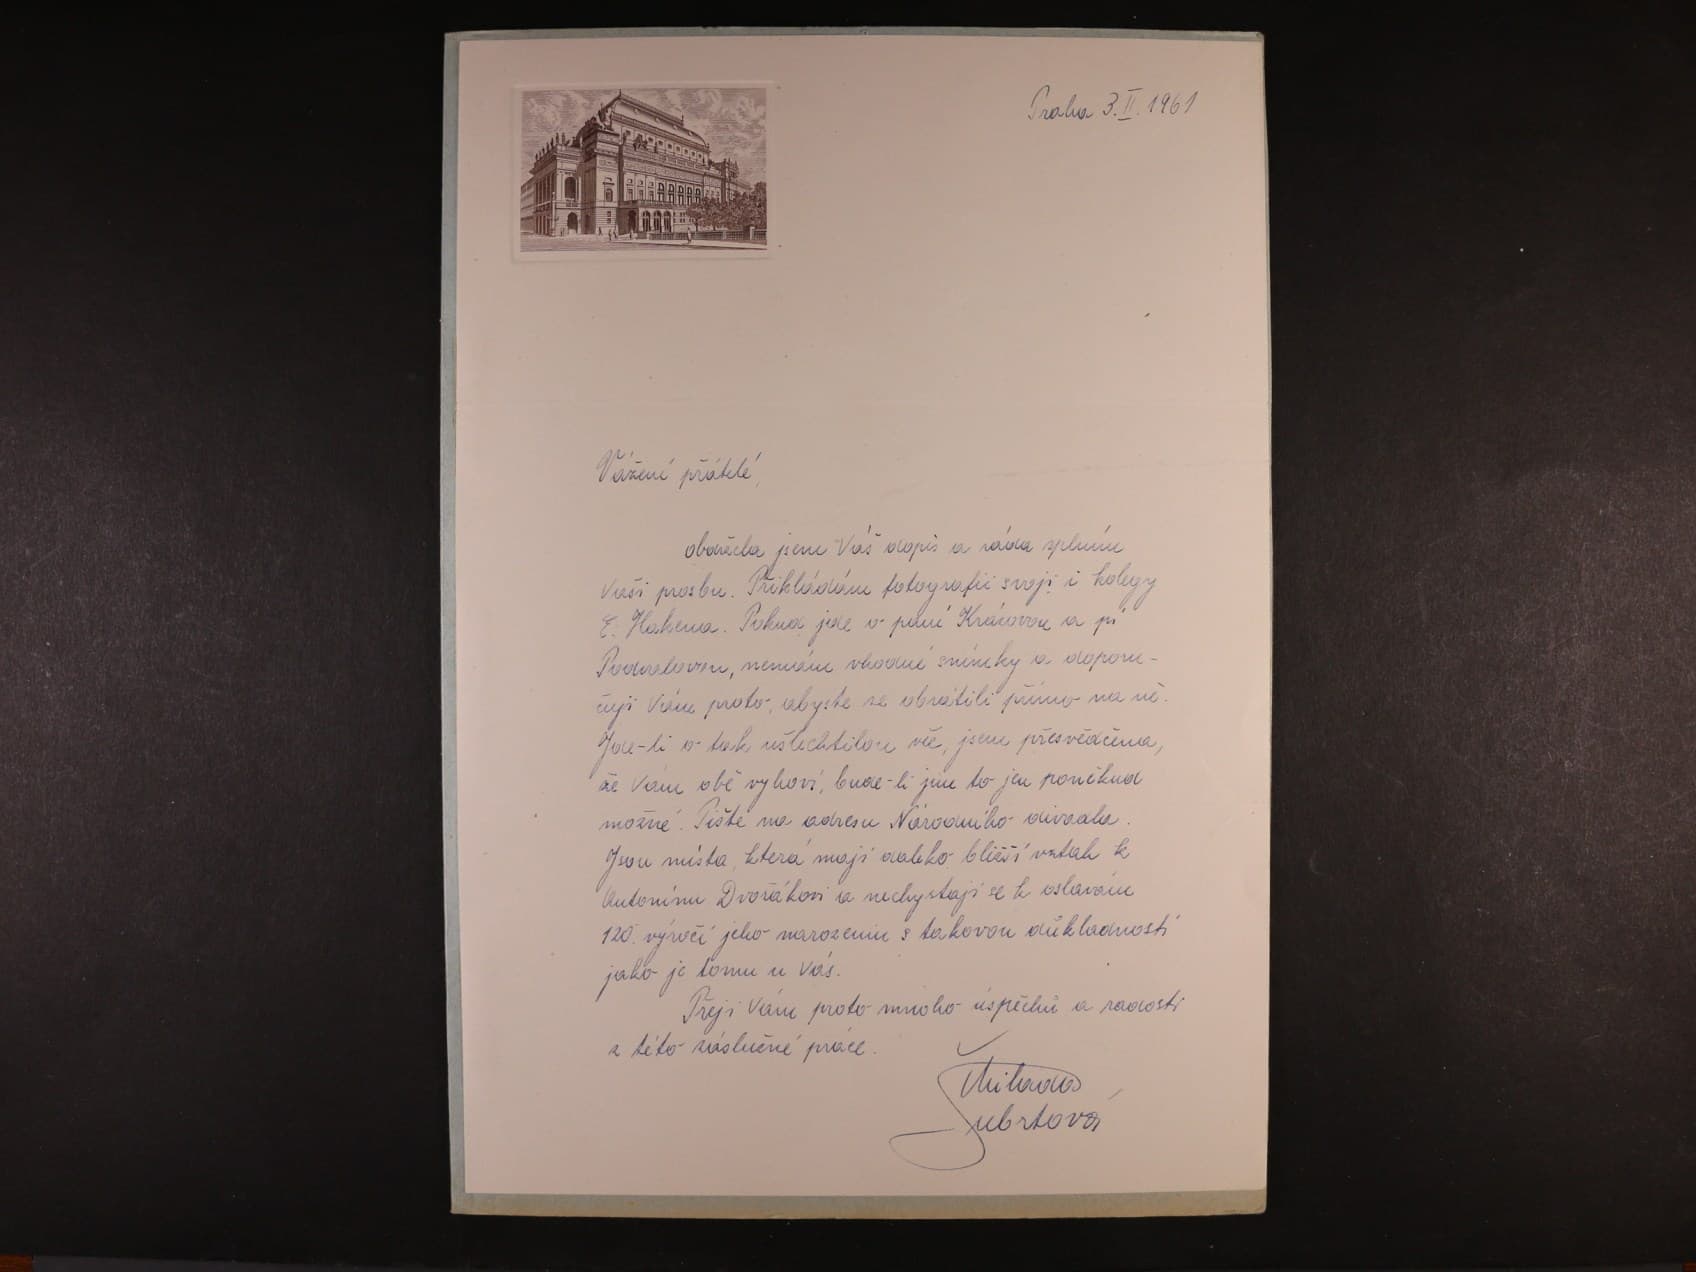 Praha 3.II.1961
Vážení přátelé,
obdržela jsem Váš dopis a ráda splním
Vaši prosbu. Přikládám fotografii svoji i kolegy
E. Hakena. Pokud jde o paní Krásovou a pí
Podvalovou, nemám vhodné snímky a doporu-
čuji Vám proto, abyste se obrátili přímo na ně.
Jde-li o tak ušlechtilou věc, jsem přesvědčena,
že Vám obě vyhoví, bude-li jim to jen poněkud
možné. Pište na adresu Národního divadla.
Jsou místa, která mají daleko bližší vztah k
Antonínu Dvořákovi a nechystají se k oslavám
120. výročí jeho narozenin s takovou důkladností
jako je tomu u Vás.
Přeji Vám proto mnoho úspěchů a radosti
z této záslužné práce.
Milada
Šubrtová